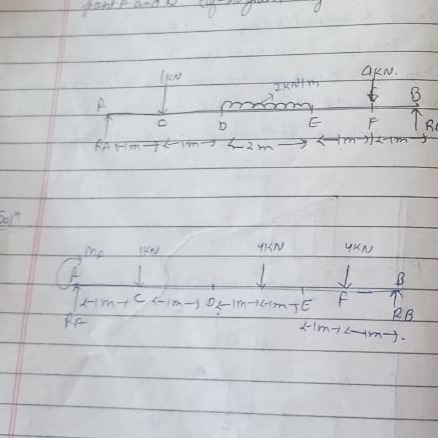 point A and
1KN 2KN/m 4KN.
A B
C D E F
RA ←1m→ ←1m→ ←2m→ ←1m→ ←1m→ RB
Solⁿ
MA 1KN 4KN 4KN
A B
←1m→ C ←1m→ D ←1m→ ←1m→ E F
RA RB
←1m→ ←1m→